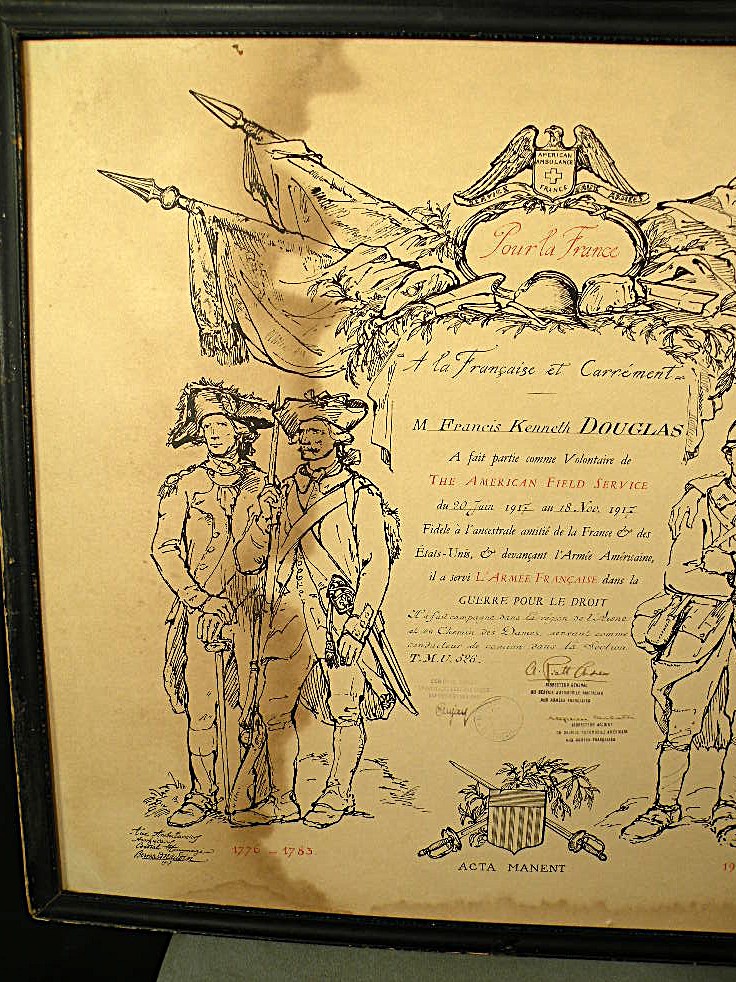 AMERICAN
AMBULANCE
FRANCE
SERVICE AUX ARMÉES
Pour la France
A la Française et Carrément
M Francis Kenneth DOUGLAS
A fait partie comme Volontaire de
THE AMERICAN FIELD SERVICE
du 20 Juin 1917 au 18 Nov. 1917
Fidèle à l'ancestrale amitié de la France & des
Etats-Unis, & devançant l'Armée Américaine,
il a servi L'ARMÉE FRANÇAISE dans la
GUERRE POUR LE DROIT
Il a fait campagne dans la région de l'Aisne
et au Chemin des Dames, servant comme
conducteur de camion dans la Section
T.M.U. 526.
A. Piatt Andrew
DIRECTEUR GENERAL
DU SERVICE AUTOMOBILE AMERICAIN
AUX ARMEES FRANÇAISES
DIRECTEUR ADJOINT
DU SERVICE AUTOMOBILE AMERICAIN
AUX ARMEES FRANÇAISES
Aux Ambulances
Cordial Hommage
1776 – 1783.
ACTA MANENT
19